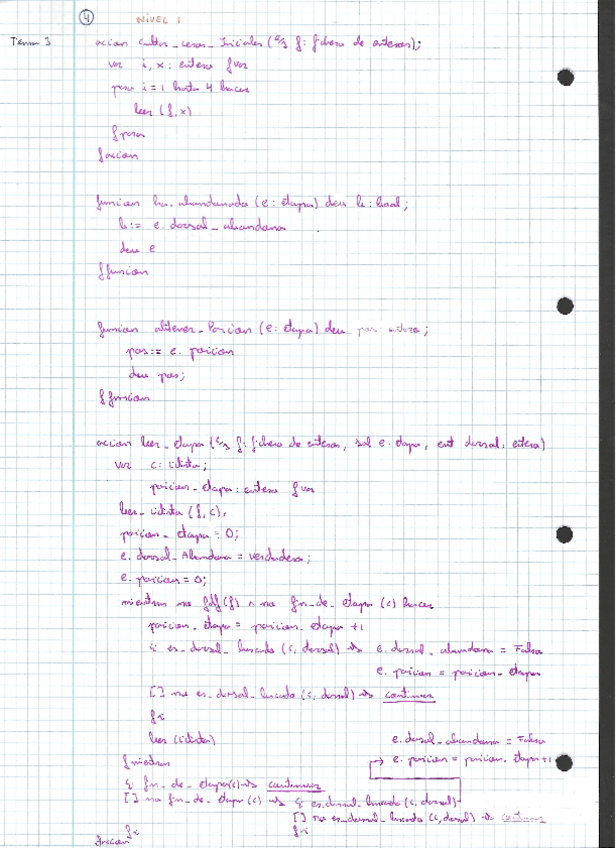 4 NIVEL 1
Tema 3 accion saltar_cesos_Iniciales (e/s f: fichero de enteros);
var i, x: entero fvar
para i=1 hasta 4 hacer
leer (f,x)
fpara
faccion
funcion ha_abandonado (e: etapa) dev b: bool;
b:= e.dorsal_abandona
dev e
ffuncion
funcion obtener_Posicion (e: etapa) dev pos: entero;
pos:= e.posicion
dev pos;
ffuncion
accion leer_etapa (e/s f: fichero de enteros, sal e: etapa, ent dorsal: entero)
var c: ciclista;
posicion_etapa: entero fvar
leer_ciclista (f,c);
posicion_etapa = 0;
e.dorsal_Abandona = verdadero;
e.posicion = 0;
mientras no fdf(f) ∧ no fin_de_etapa (c) hacer
posicion_etapa = posicion_etapa +1
si es_dorsal_buscado (c, dorsal) → e.dorsal_abandona = Falso
e.posicion = posicion_etapa
[] no es_dorsal_buscado (c, dorsal) → continuar
fsi
leer (ciclista)
fmientras
si fin_de_etapa(c) → continuar
[] no fin_de_etapa (c) → si es_dorsal_buscado (c, dorsal)
e.dorsal_abandona = Falso
→ e.posicion = posicion_etapa+1
[] no es_dorsal_buscado (c, dorsal) → continuar
fsi fsi
faccion